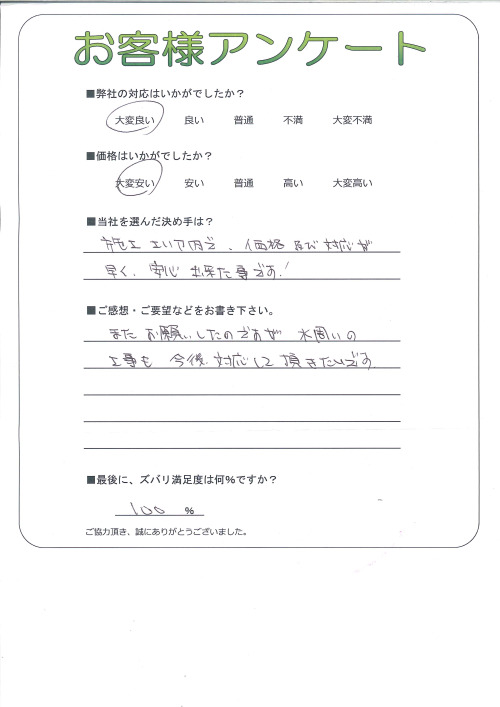 お客様アンケート
■弊社の対応はいかがでしたか？
大変良い 良い 普通 不満 大変不満
■価格はいかがでしたか？
大変安い 安い 普通 高い 大変高い
■当社を選んだ決め手は？
施工エリア内で、価格及び対応が
早く、安心出来た事です！
■ご感想・ご要望などをお書き下さい。
またお願いしたのですが 水周りの
工事も 今後 対応して 頂きたいです。
■最後に、ズバリ満足度は何%ですか？
100 %
ご協力頂き、誠にありがとうございました。